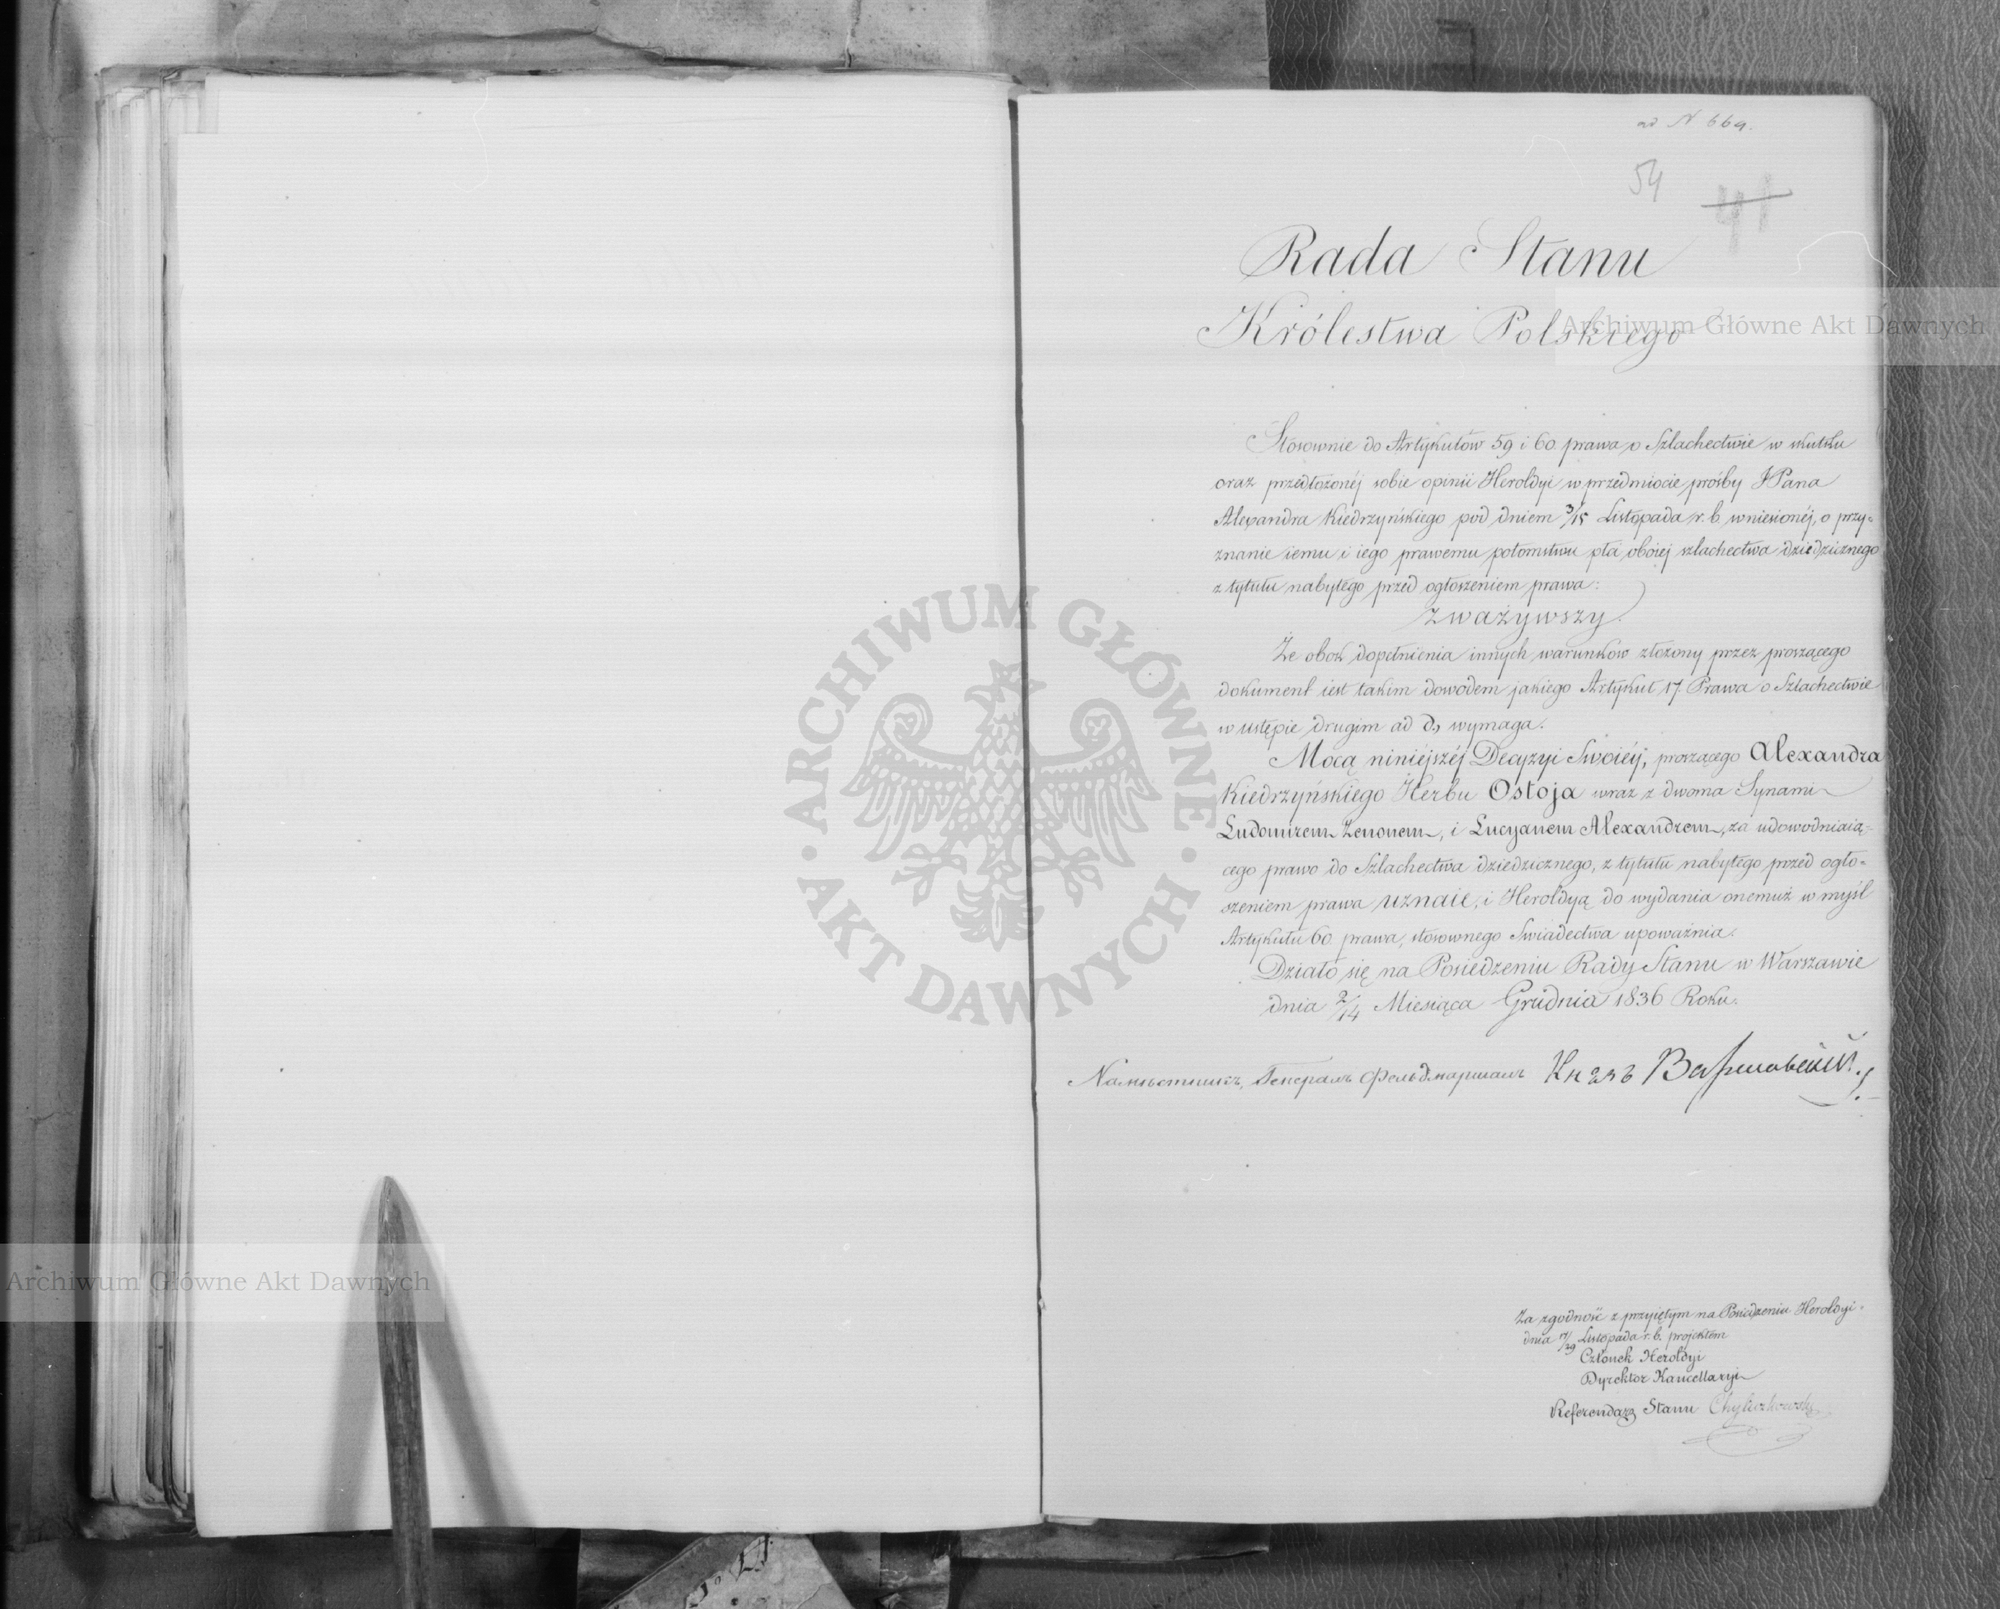 ad N 669.
54
41
Rada Stanu
Królestwa Polskiego
Stosownie do Artykułów 59 i 60 prawa o Szlachectwie w skutku
oraz przedłożonéj sobie opinii Heroldyi w przedmiocie prośby JPana
Alexandra Kiedrzyńskiego pod dniem 3/15 Listopada r. b. wniesionéj, o przy-
znanie iemu i iego prawemu potomstwu płci oboiej szlachectwa dziedzicznego
z tytułu nabytego przed ogłoszeniem prawa:
zważywszy.
Że obok dopełnienia innych warunków złożony przez proszącego
dokument iest takim dowodem jakiego Artykuł 17. Prawa o Szlachectwie
w ustępie drugim ad d, wymaga.
Mocą niniejszéj Decyzyi Swoiéj, proszącego Alexandra
Kiedrzyńskiego Herbu Ostoja wraz z dwoma Synami
Ludomirem Zenonem, i Lucyanem Alexandrem, za udowodniaią-
cego prawo do Szlachectwa dziedzicznego, z tytułu nabytego przed ogło-
szeniem prawa uznaie, i Heroldyą do wydania onemuż w myśl
Artykułu 60 prawa, stosownego Swiadectwa upoważnia.
Działo się na Posiedzeniu Rady Stanu w Warszawie
dnia 2/14 Miesiąca Grudnia 1836 Roku.
Намѣстникъ, Генералъ Фельдмаршалъ Князь Варшавскій
Za zgodność z przyiętym na Posiedzeniu Heroldyi
dnia 17/29 Listopada r. b. projektem
Członek Heroldyi
Dyrektor Kancellaryi
Referendarz Stanu Chyliczkowski
Archiwum Główne Akt Dawnych
ARCHIWUM GŁÓWNE · AKT DAWNYCH ·
Archiwum Główne Akt Dawnych